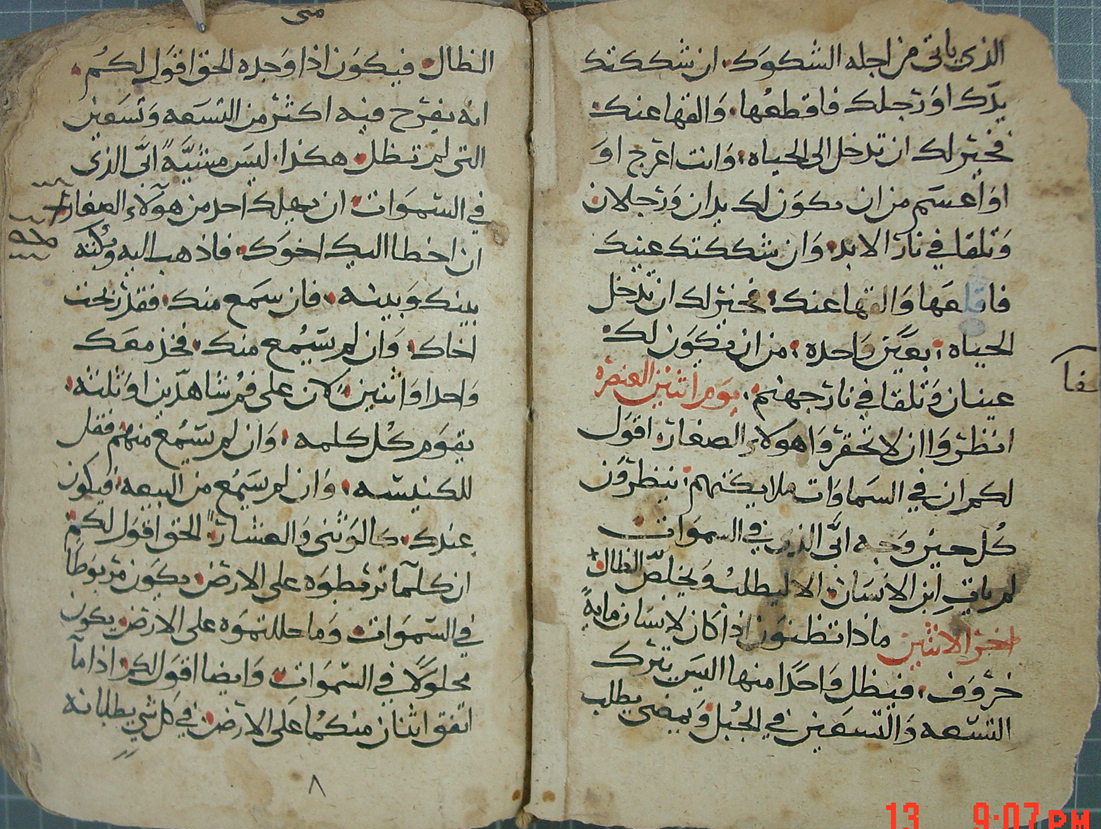 الذي ياتي من اجله الشكوك ان شككتك
يدك او رجلك فاقطعها والقها عنك
فخير لك ان تدخل الى الحياه وانت اعرج او
او اعسم من ان يكون لك يدان ورجلان
وتلقا في نار الابد وان شككتك عينك
فاقلعها والقها عنك فخير لك ان تدخل
الحياه بعين واحده من ان تكون لك
عينان وتلقا في نار جهنم يوم اثنين العنصره
انظروا ان لا تحقروا هولاء الصغار اقول
لكم ان في السماوات ملايكتهم ينظرون
كل حين وجه ابي الذي في السموات
لم يات ابن الانسان الا ليطلب ويخلص الظال
اخر الاثنين ماذا تظنون اذا كان لانسان ماية
خروف فيظل واحدا منها اليس يترك
التسعه والتسعين في الجبل ويمضي يطلب
متى
الظال فيكون اذا وجده الحق اقول لكم
انه يفرح فيه اكثر من التسعه وتسعين
التي لم تظل هكذا ليس مشيية ابي الذي
في السموات ان يهلك احد من هولاء الصغار
ان اخطا اليك اخوك فاذهب اليه وبكته
بينك وبينه فان سمع منك فقد ربحت
اخاك وان لم يسمع منك فخذ معك
واحدا واثنين كان على فم شاهدين او ثلثه
يقوم كل كلمه وان لم يسمع منهم فقل
للكنيسه وان لم يسمع من البيعه فيكون
عندك كالوثني والعشار الحق اقول لكم
ان كلما تربطوه على الارض يكون مربوطا
في السموات وما حللتموه على الارض يكون
محلولا في السموات وايضا اقول لكم اذا ما
اتفق اثنان منكما على الارض في كل شي يطلبانه
٨
13 9:07 PM